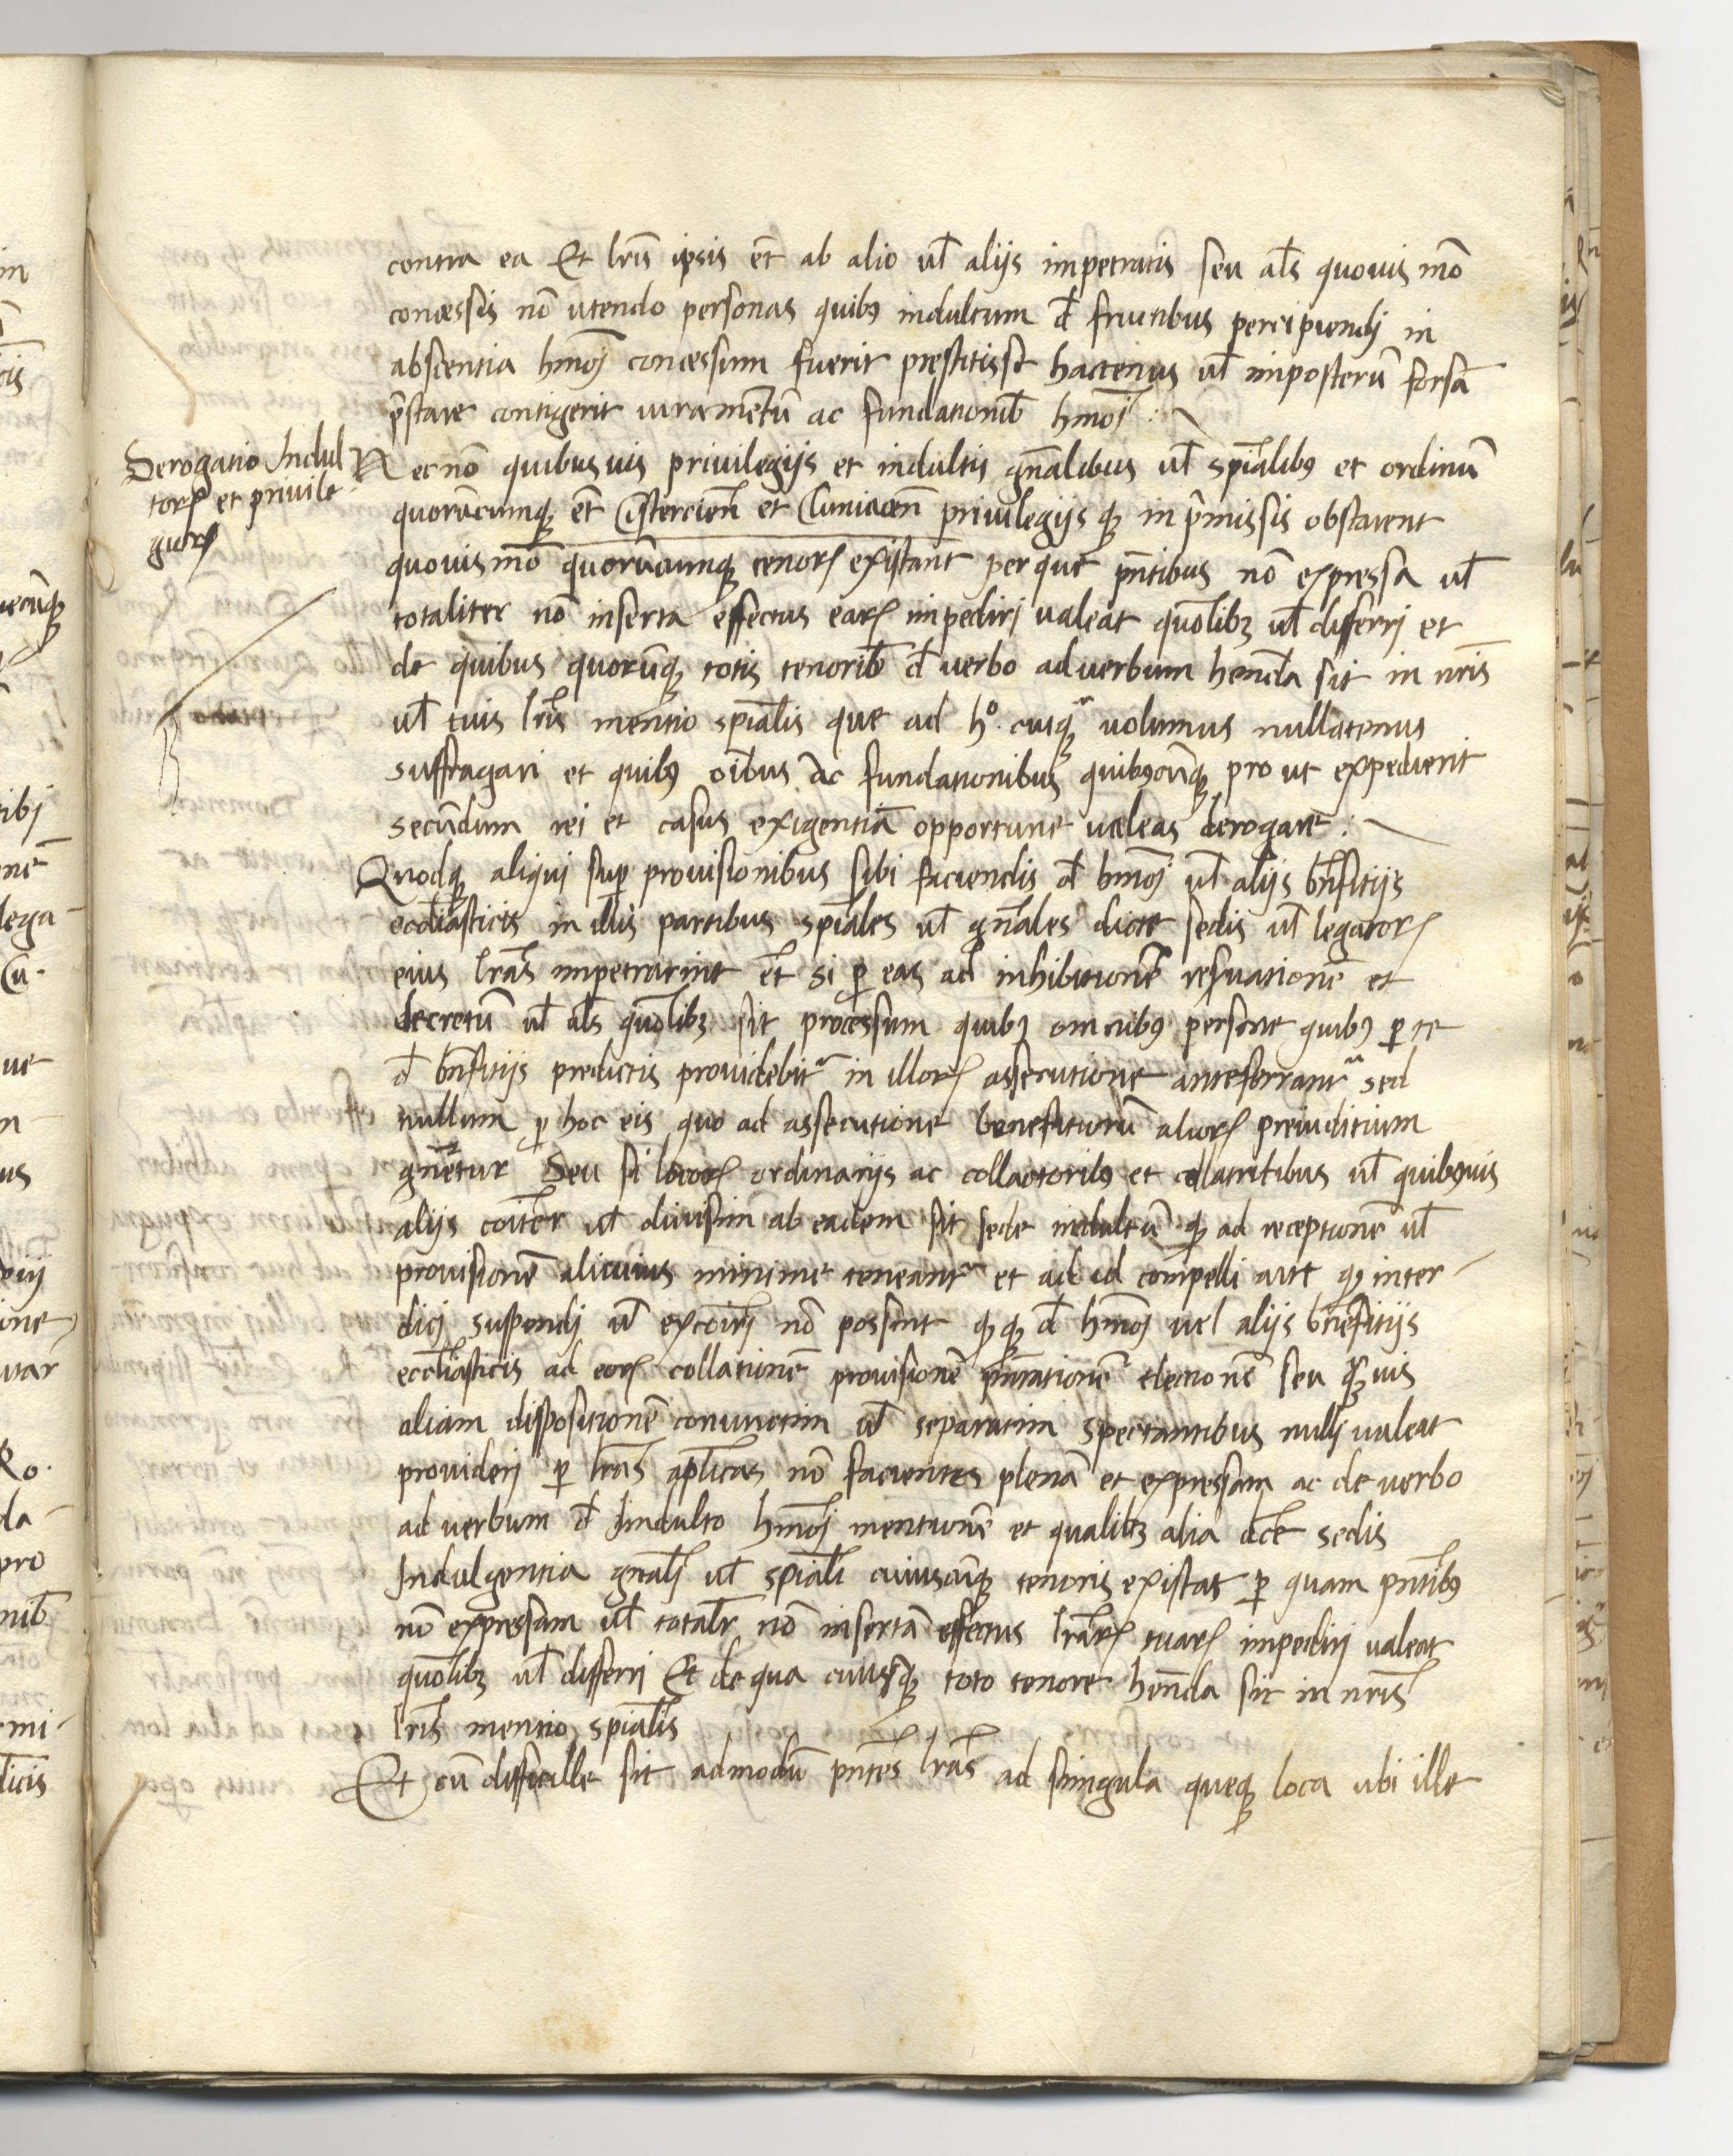 contra ea Et lrīs ipsis ēt ab alio ul̄ alijs impetratis seu al̄s quouis mō
concessis nō utendo personas quibꝰ indultum d̄ fructibus percipiendj in
abscentia hm̄oj concessum fuerit prestitisse hactenus ul̄ imposterū forsā
p̄stare contigerit iuramentū ac fundationib̄ hm̄oj
Derogatio Indul
torꝝ et privile
giorꝝ
Necnō quibusuis priuilegijs et indultis gn̄alibus ul̄ spīalibꝰ et ordinū
quorūcumqꝫ ēt Cistercien̄ et Cluniacen̄ priuilegijs qꝫ in p̄missis obstarent
quouismō quorūcumqꝫ tenorꝝ existant per que pn̄tibus nō expressa ul̄
totaliter nō inserta effectus earꝝ impedirj ualeat quōlibꝫ ul̄ differrj et
de quibus quorūqꝫ totis tenorib̄ d̄ verbo ad verbum hēnda sit in nr̄is
ul̄ tuis lr̄is mentio spīalis que ad hº cuiqꝫ uolumus nullatenus
suffragari et quibꝰ oībus ac fundationibus quibꝰcūqꝫ pro ut expedierit
secūdum rei et casus exigentiā opportune ualeas derogare
Quodqꝫ aliquj sup̱ prouisionibus sibi faciendis d̄ hm̄oj ul̄ alijs bn̄fitijs
eccl̄iasticis in illis partibus spīales ul̄ gn̄ales dicte sedis ul̄ legatorꝝ
eius lr̄as impetrarint ēt si ꝑ eas ad inhibitionē reſuationē et
decretū ul̄ al̄s quōlibꝫ sit processum quibꝰ omnibꝰ persone quibꝰ ꝑ te
d̄ bn̄fitijs predictis prouidebit in illorꝝ assecutione anteferrant sed
nullum ꝑ hoc eis quo ad assecutione benefitiorū aliorꝝ preiuditium
gn̄etur Seu si locorꝝ ordinarijs ac collactoribꝰ et collatritibus ul̄ quibꝰuis
alijs cōiter ul̄ diuisim ab eadem sit sede indultū qꝫ ad receptionē ul̄
prouisionē alicuius minime teneant et ad id compelli aut qꝫ inter
dicj suspendj ul̄ excōirj nō possint qꝫqꝫ d̄ hm̄oj uel alijs bn̄efitijs
eccl̄iasticis ad eorꝝ collationē prouisionē pn̄tationē electionē seu quāuis
aliam dispositionē coniunctim ul̄ separatim spectantibus nullj ualeat
prouiderj ꝑ lr̄as apl̄icas nō facientes plenā et expressam ac de uerbo
ad uerbum d̄ Jndulto hm̄oj mentionē et qualibꝫ alia dc̄e sedis
Indulgentia gn̄alj ul̄ spīalī cuiuscūqꝫ tenoris existat ꝑ quam pn̄tibꝰ
nō expressam ul̄ total̄r nō insertā effectus lr̄arꝝ tuarꝝ impedirj valeat
quōlibꝫ ul̄ differri Et de qua cuiusqꝫ toto tenore hēnda sit in nr̄is
lr̄is mentio spīalis
Et cū difficille sit admodū pn̄tes lr̄as ad singula queqꝫ loca ubi ille